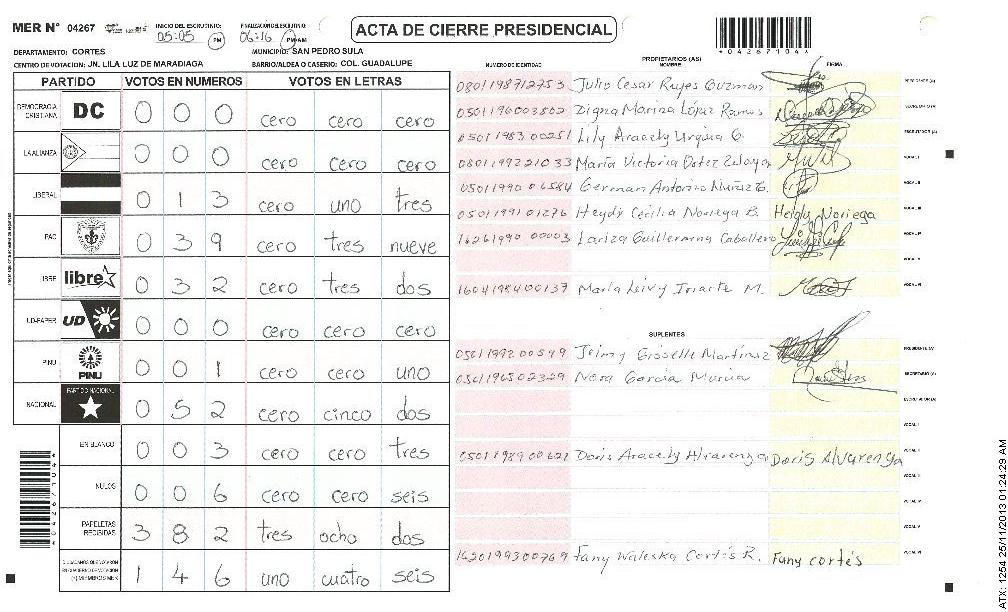 MER N° 04267
INICIO DEL ESCRUTINIO: 05:05 PM
FINALIZACIÓN DEL ESCRUTINIO: 06:16 PM AM
ACTA DE CIERRE PRESIDENCIAL
*04267104*
DEPARTAMENTO: CORTES
MUNICIPIO: SAN PEDRO SULA
CENTRO DE VOTACION: JN. LILA LUZ DE MARADIAGA
BARRIO/ALDEA O CASERIO: COL. GUADALUPE
PARTIDO VOTOS EN NUMEROS VOTOS EN LETRAS
DEMOCRACIA CRISTIANA DC 0 0 0 cero cero cero
LA ALIANZA 0 0 0 cero cero cero
LIBERAL 0 1 3 cero uno tres
PAC 0 3 9 cero tres nueve
LIBRE libre 0 3 2 cero tres dos
UD-FAPER UD 0 0 0 cero cero cero
PINU PINU 0 0 1 cero cero uno
NACIONAL PARTIDO NACIONAL 0 5 2 cero cinco dos
EN BLANCO 0 0 3 cero cero tres
NULOS 0 0 6 cero cero seis
PAPELETAS RECIBIDAS 3 8 2 tres ocho dos
1 4 6 uno cuatro seis
*04267104*
PROPIETARIOS (AS)
NUMERO DE IDENTIDAD NOMBRE FIRMA
0801198712753 Julio Cesar Reyes Guzman PRESIDENTE (A)
0501196003802 Digna Marina López Ramos SECRETARIO (A)
0501198300251 Lily Aracely Urquia G. ESCRUTADOR (A)
0801199221033 María Victoria VOCAL I
0501199006584 German Antonio Nuñez VOCAL II
0501199101276 Heydy Cecilia Noriega B. Heidy Noriega VOCAL III
1626199000003 Lariza Guillermina Caballero VOCAL IV
VOCAL V
1604198400137 María Leivy Iriarte M. VOCAL VI
SUPLENTES
0501199200599 Jeimy Gisselle Martinez PRESIDENTE (A)
0501196502329 Nora García SECRETARIO (A)
ESCRUTADOR (A)
VOCAL I
0501198900621 Doris Aracely Alvarenga Doris Alvarenga VOCAL II
VOCAL III
VOCAL IV
VOCAL V
1620199300769 Fany Waleska Cortés R. Fany cortés VOCAL VI
ATX: 1254 25/11/2013 01:24:29 AM